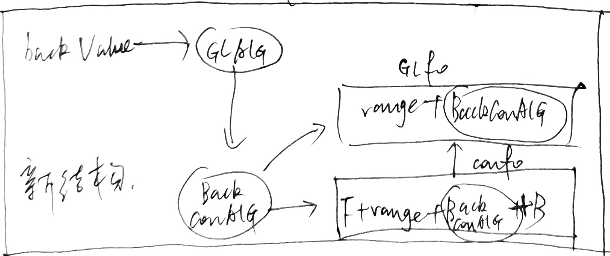 back Value
GLAlG
GLfo
range+ BackConAlG
confo
Back
ConAlG
F+range+ Back
ConAlG
B